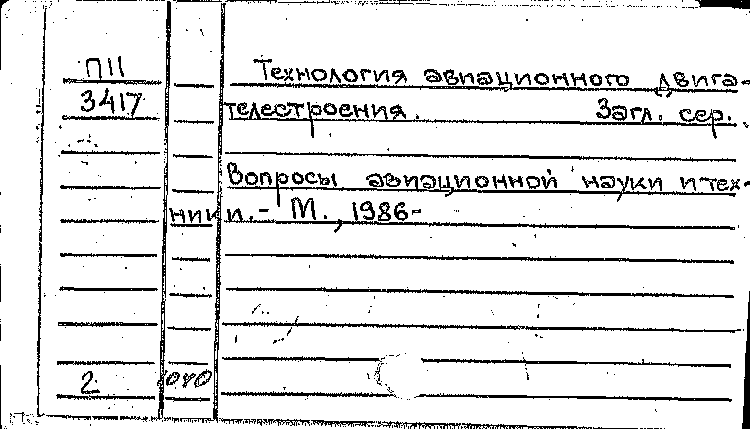 П11 Технология авиационного двига-
3417 телестроения. Загл. сер.
Вопросы авиационной науки и тех-
ники. - М., 1986-
2